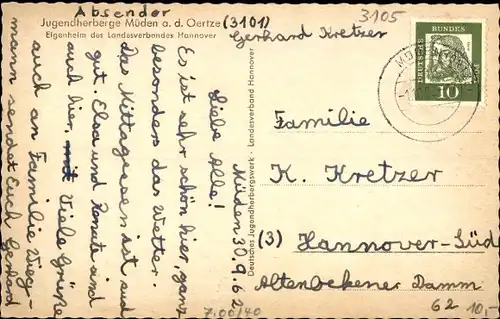 Absender
Jugendherberge Müden a. d. Oertze
Eigenheim des Landesverbandes Hannover
(3101)
Gerhard Kretzer
3105
DEUTSCHE BUNDESPOST
10
Müden 30.9.62
Liebe Alle!
Es ist sehr schön hier, ganz
besonders das Wetter.
Das Mittagessen ist auch
gut. Elsa und Renate sind
auch hier. Viele Grüße
auch an Familie Wieg-
mann sendet Euch Gerhard
Deutsches Jugendherbergswerk - Landesverband Hannover
Familie
K. Kretzer
(3) Hannover-Süd
Altenbekener Damm
62
10,-
7,00/40